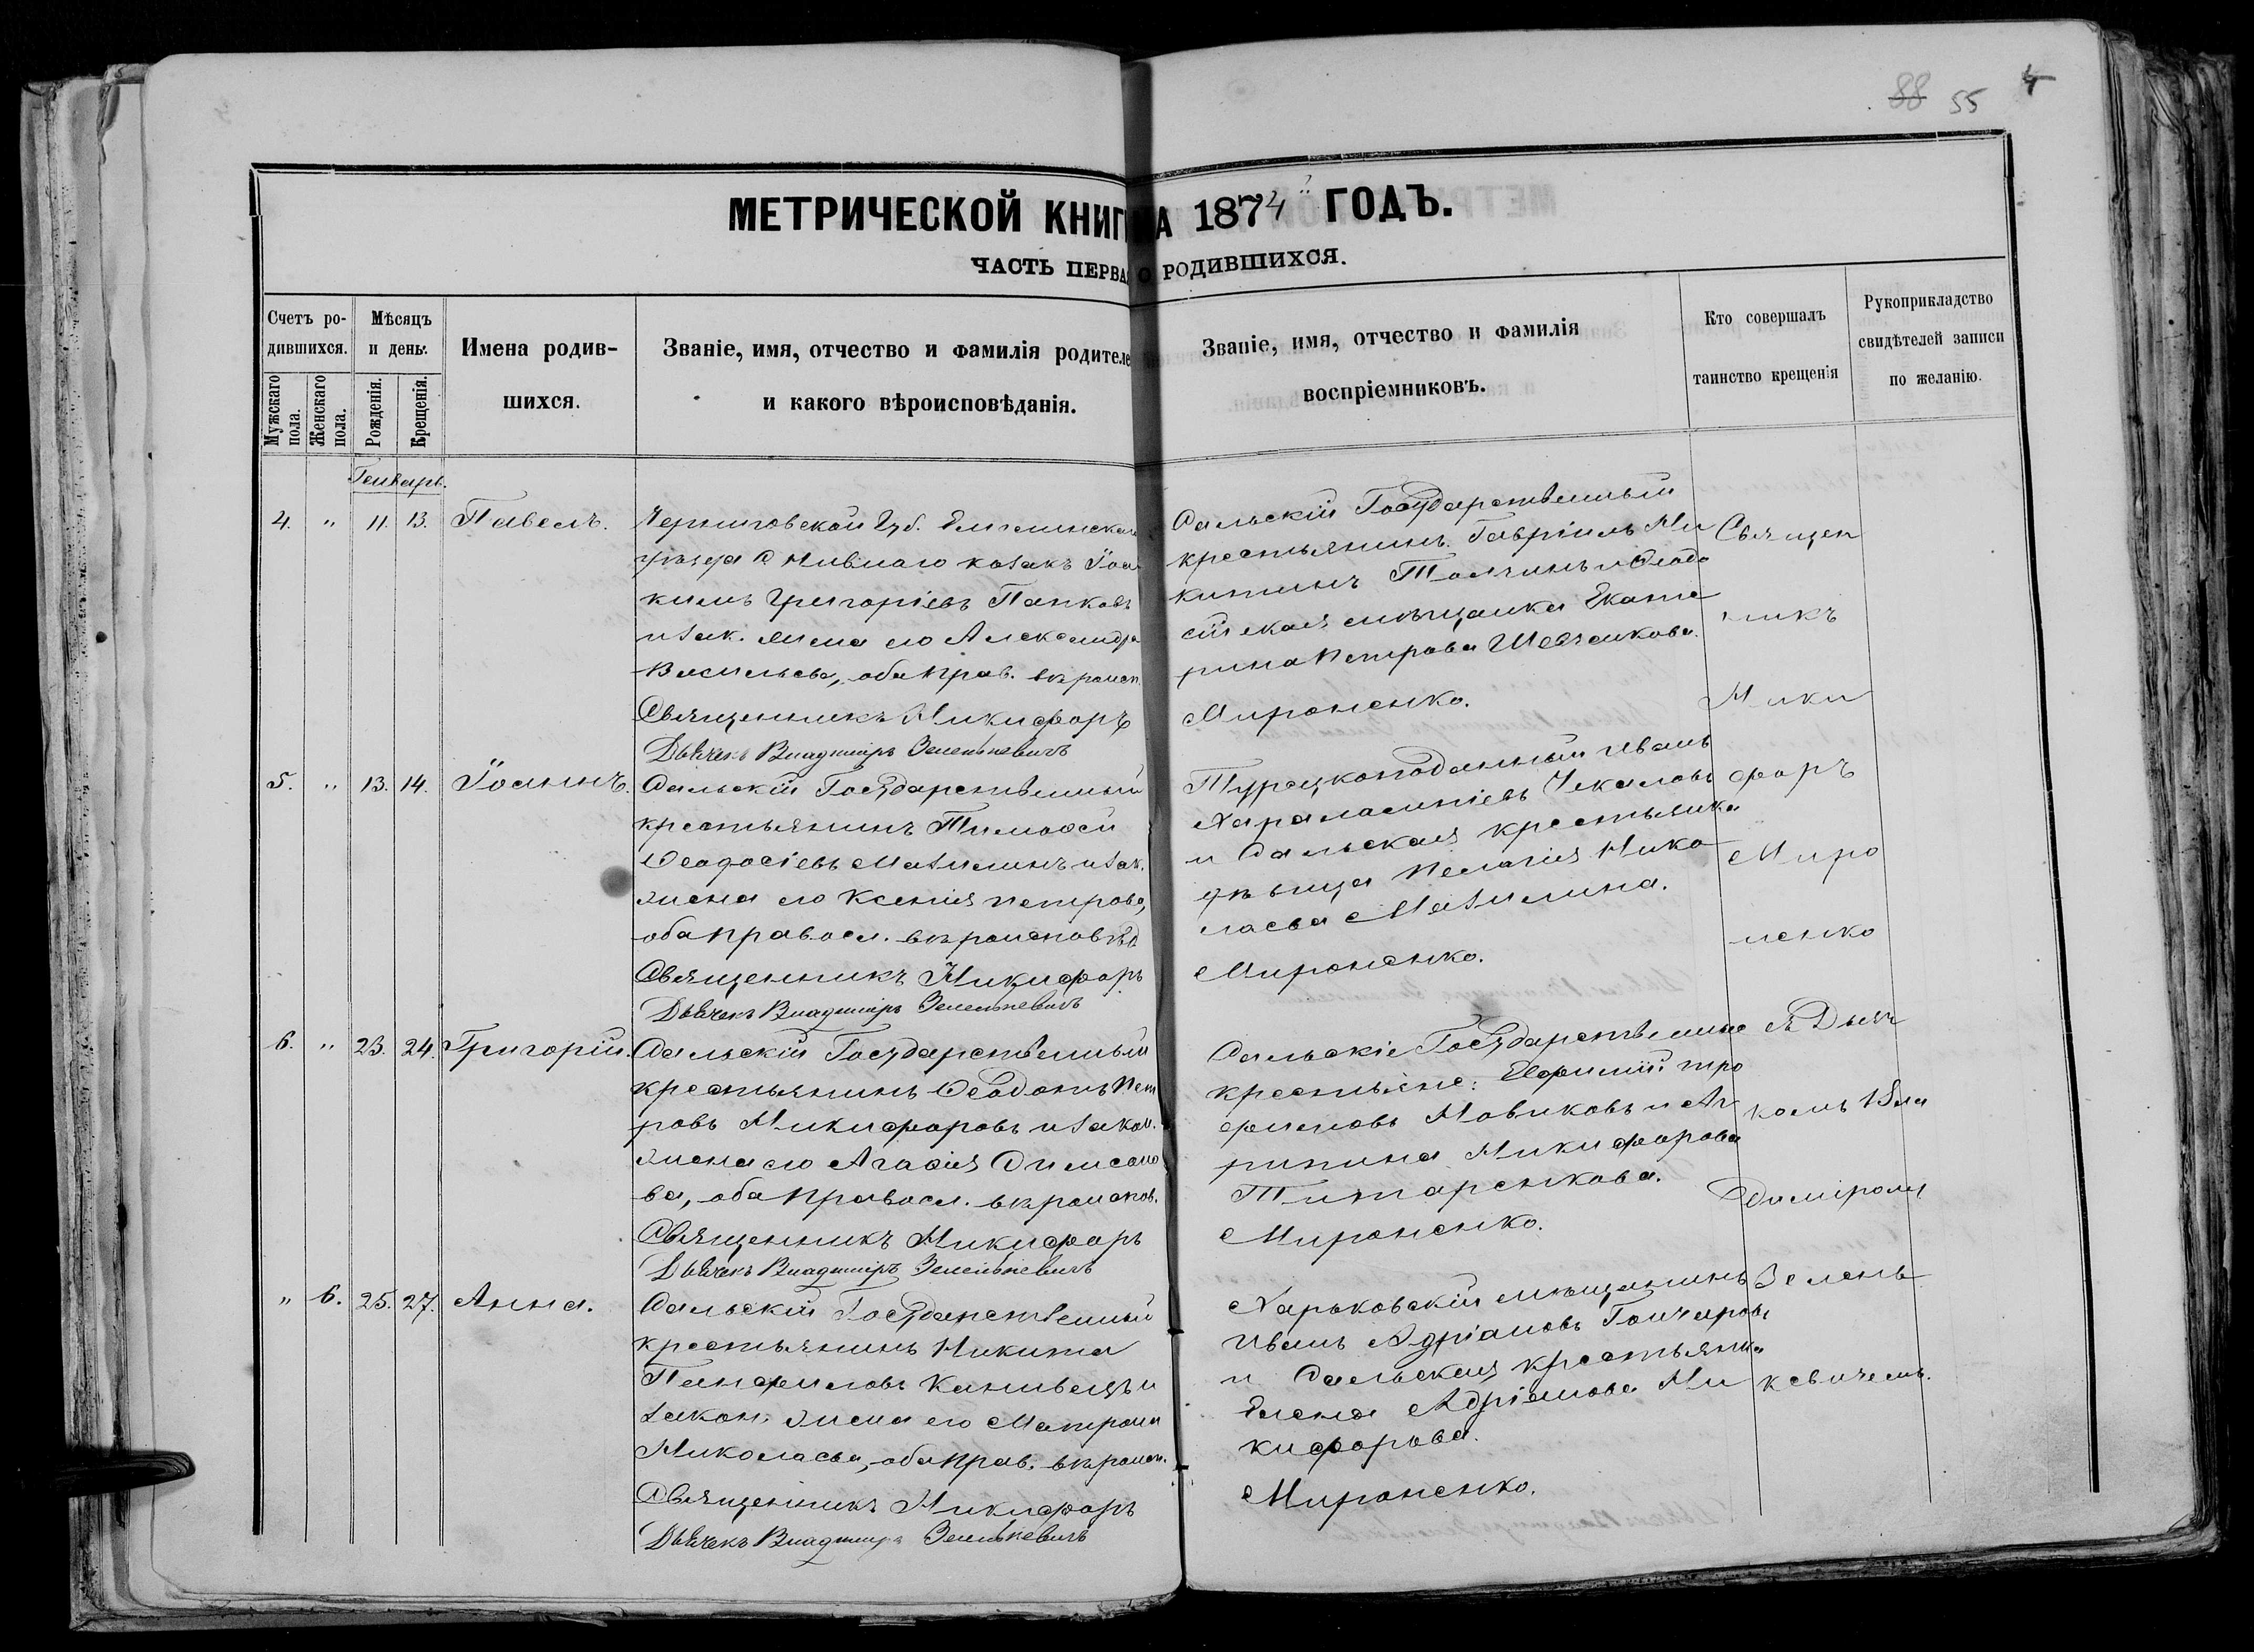 88 55 4
МЕТРИЧЕСКОЙ КНИГ А 1874 ГОДЪ.
ЧАСТЬ ПЕРВА О РОДИВШИХСЯ.
Счетъ ро-
дившихся.
Мужскаго пола.
Женскаго пола.
Мѣсяцъ
и день.
Рожденія.
Крещенія.
Имена родив-
шихся.
Званіе, имя, отчество и фамилія родителе
и какого вѣроисповѣданія.
Званіе, имя, отчество и фамилія
воспріемниковъ.
Кто совершалъ
таинство крещенія
Рукоприкладство
свидѣтелей записи
по желанію.
Генварь.
4. " 11. 13. Павелъ.
Черниговской Губ.
уѣзда с Ивнаго козакъ Іоа
кимъ Григоріевъ Папковъ
и зак. жена его Александра
Васильева, оба прав. вѣроисп.
Священникъ Никифоръ
Дьячекъ Владиміръ Зеленкевичъ
Сальскій Государственный
крестьянинъ Гавріилъ Ни
китинъ и Ѳеодо
сійская мѣщанка Екате
рина Петрова Шевченкова.
Мироненко.
5. " 13. 14. Іоаннъ.
Сальскій Государственный
крестьянинъ Тимофей
Ѳеодосіевъ Мазилинъ и зак.
жена его Ксенія Петрова,
оба правосл. вѣроисповѣд
Священникъ Никифоръ
Дьячекъ Владиміръ Зеленкевичъ
Турецкоподанный Иванъ
Харалампіевъ Чекаловъ
и Сальская крестьянка
дѣвица Пелагія Нико
лаева Мазилина.
Мироненко.
6. " 23. 24. Григорій.
Сальскій Государственный
крестьянинъ Ѳеодотъ Пет
ровъ Никифоровъ и закон.
жена его Агафія Симеоно
ва, оба правосл. вѣроисповѣд.
Священникъ Никифоръ
Дьячекъ Владиміръ Зеленкевичъ
Сальскіе Государственные
крестьяне: Евфимій тро
фимовъ Новиковъ и Аг
рипина Никифорова
Титаренкова.
Мироненко.
" 6. 25. 27. Анна.
Сальскій Государственный
крестьянинъ Никита
Панфиловъ Канивецъ и
закон. жена его Матрона
Николаева, оба прав. вѣроисп.
Священникъ Никифоръ
Дьячекъ Владиміръ Зеленкевичъ
Харьковскій мѣщанинъ
Иванъ Адріановъ Гончаровъ
и Сальская крестьянка
Елена Адріанова Ни
кифорова.
Мироненко.
Священ
никъ
Ники
форъ
Миро
ненко
съ Дьяч
комъ Вла
диміромъ
Зелень
кевичемъ.